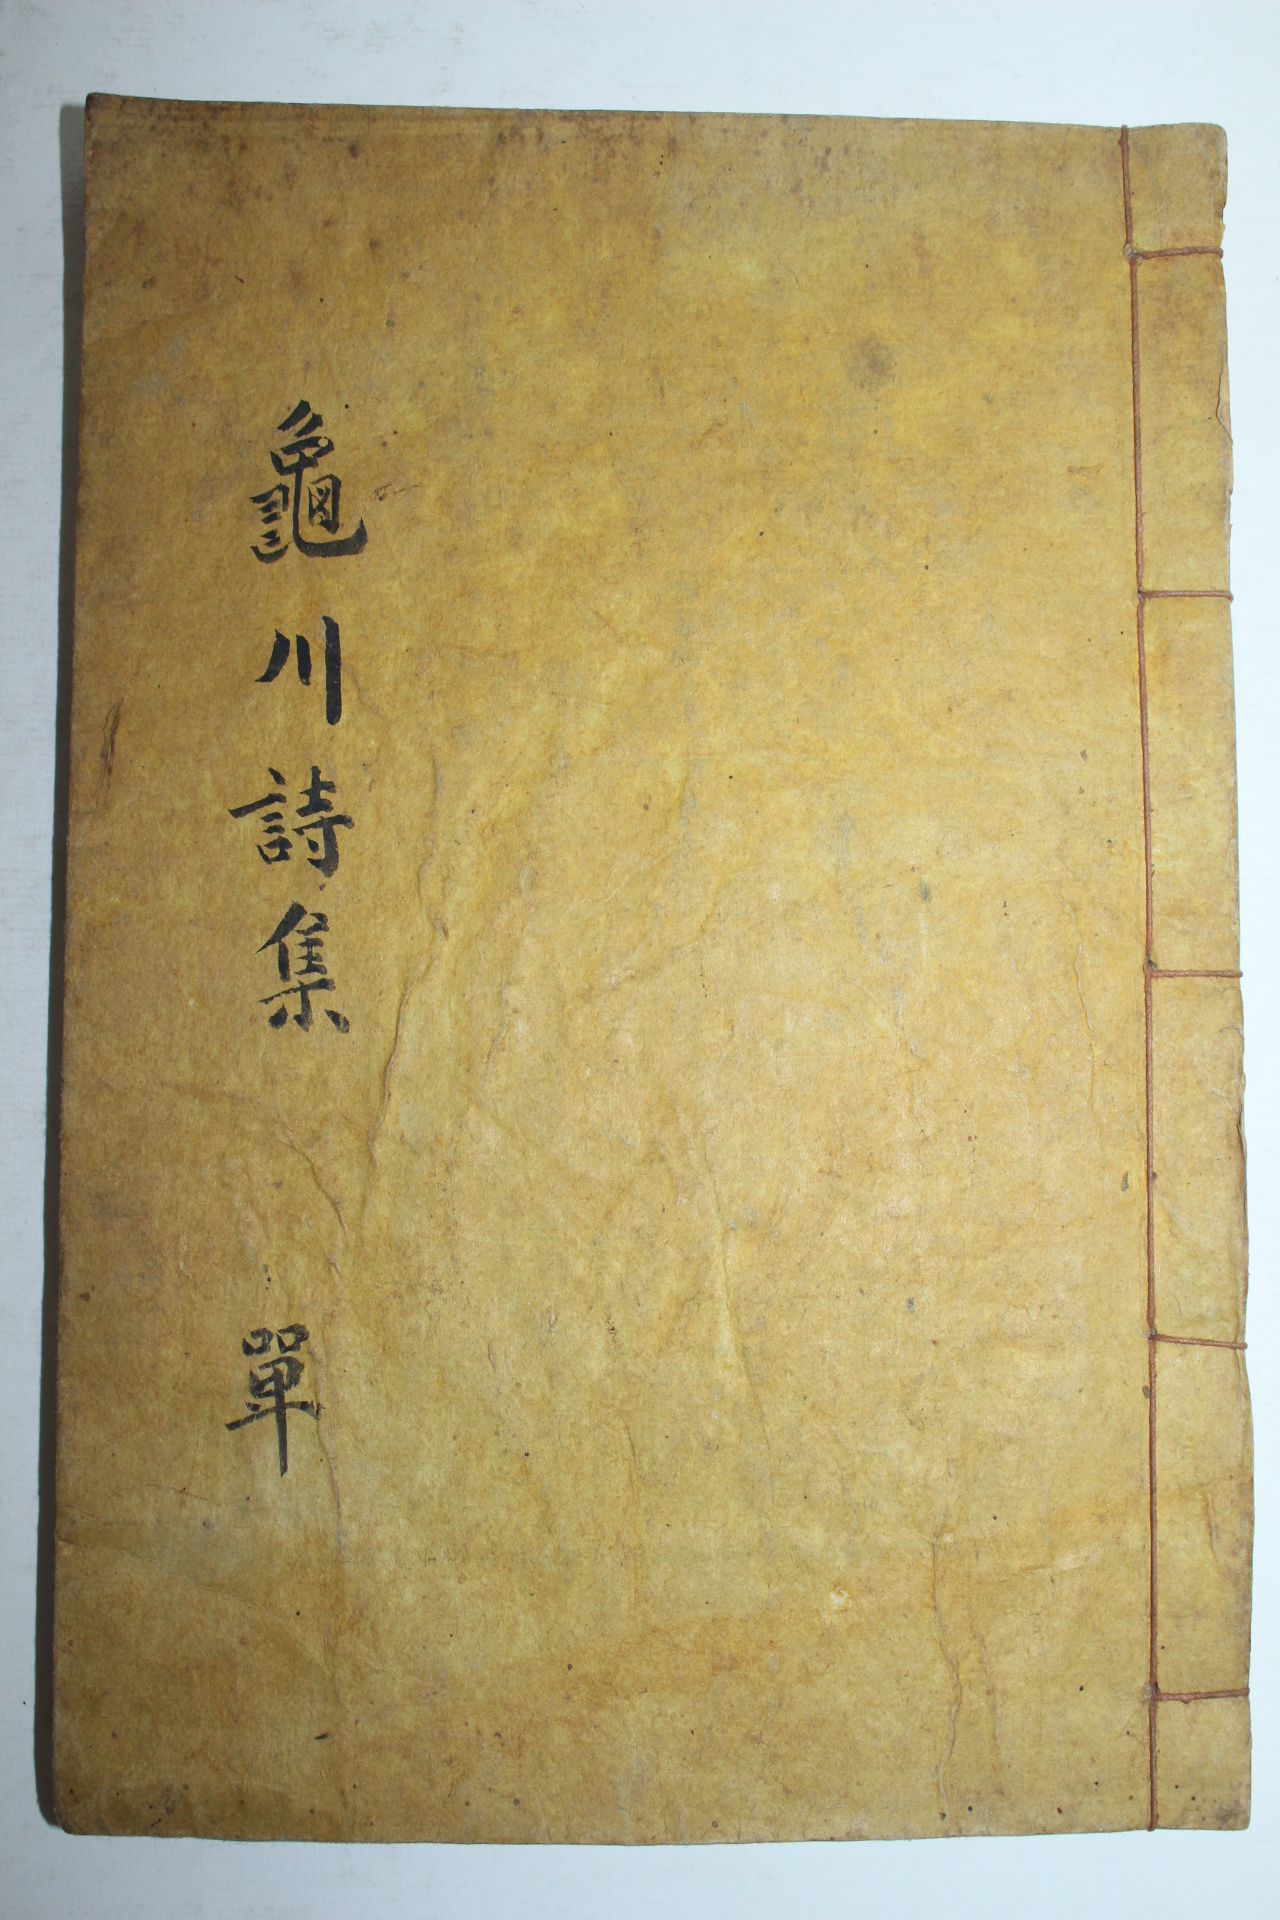 龜川詩集
單